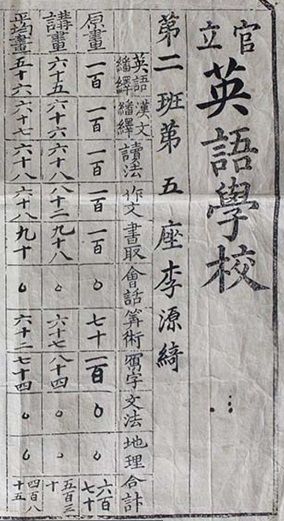 官立
英語學校
第二班第五座李源綺
英語繙繹 漢文繙繹 讀法 作文 書取 會話 筭術 字 文法 地理 合計
原畫 一百 一百 一百 一百 一百 ○ 七十 一百 ○ ○ 六百七十
講畫 六十五 六十六 六十八 八十二 九十八 ○ 六十七 八十四 ○ ○ 五百三十
平均畫 五十六 六十七 六十八 六十八 九十 ○ 六十二 七十四 ○ ○ 四百八十五